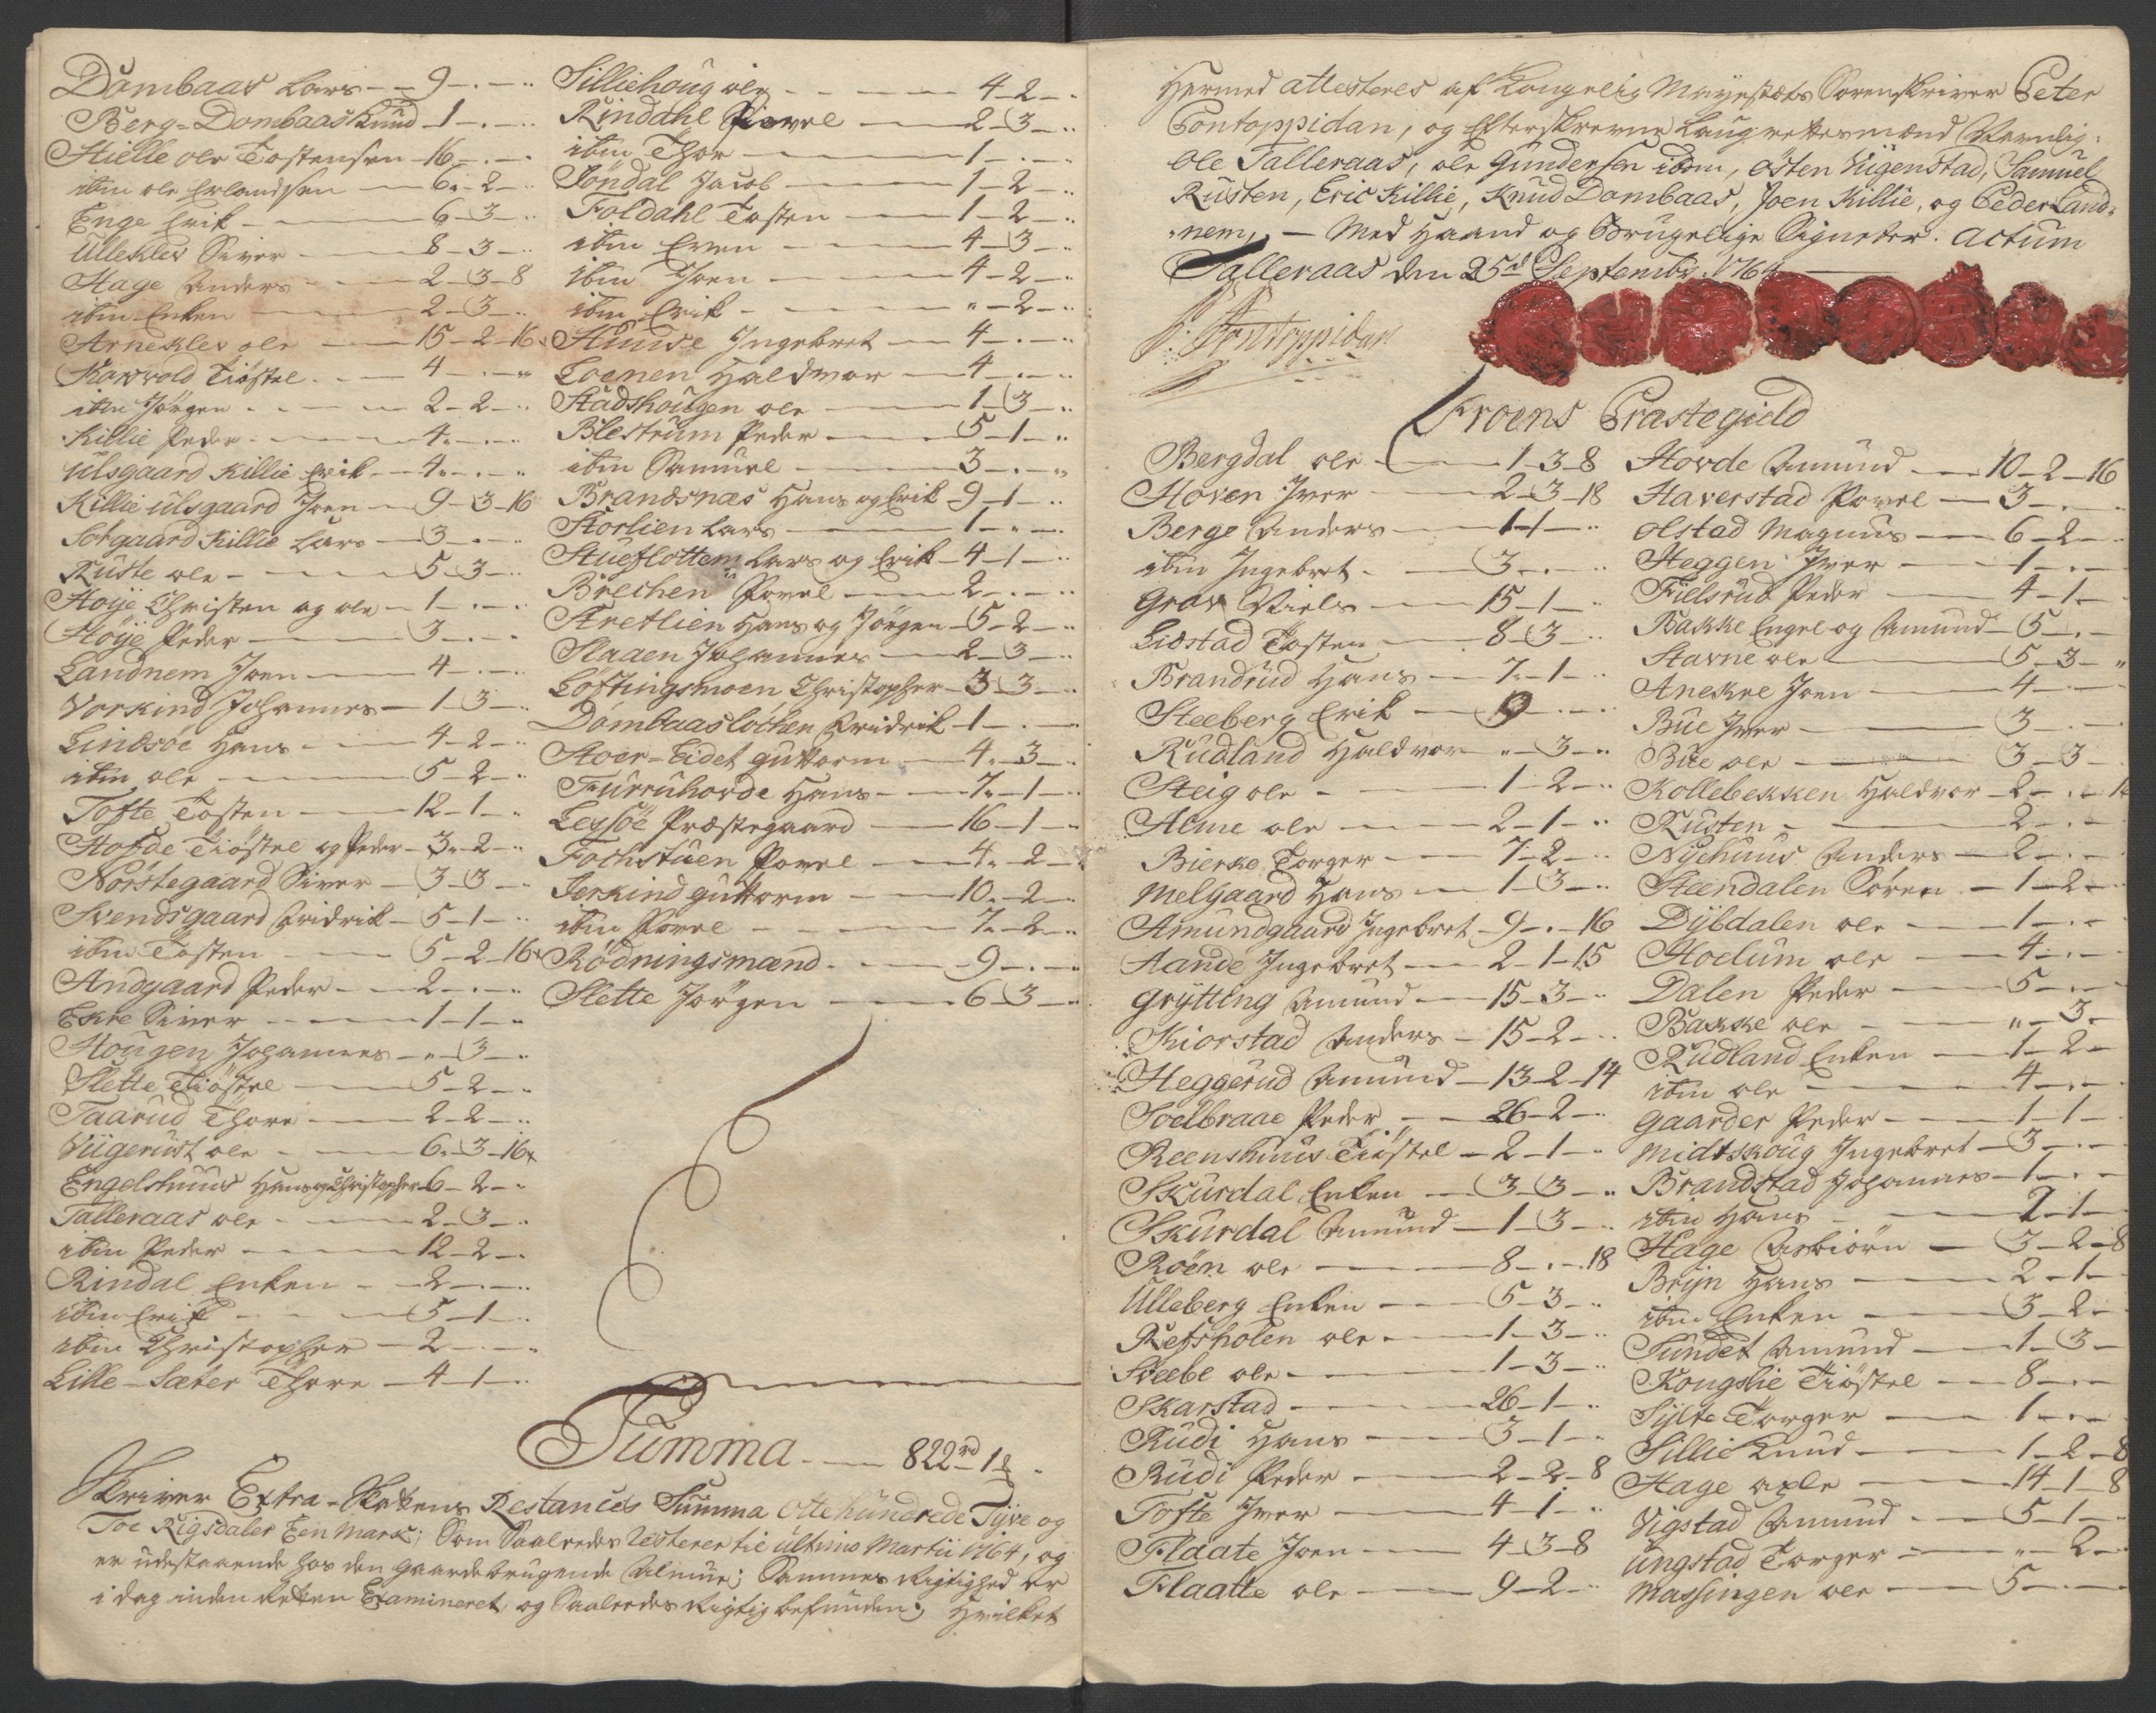 Dombaas Lars - - 9 - . - ..
Berg-Dombaas Knud - 1 - . - ..
Hielle ole Tostensen - 16 - . - ..
ibm ole Erlandsen - 6 - 2 - ..
Enge Erik - 6 - 3 - ..
Ullekler Siver - 8 - 3 - ..
Hage Anders - 2 - 3 - 8
ibm Enken - 2 - 3 - ..
Arnekler ole - 15 - 2 - 16
Kawold Tiöstel - 4 - . - ..
ibm Jörgen - 2 - 2 - ..
Killie Peder - 4 - . - ..
Ulsgaard Killie Erik - 4 - . - ..
Killie Ulsgaard Joen - 9 - 3 - 16
Sotgaard Killie Lars - 3 - . - ..
Ruste ole - 5 - 3 - ..
Hoije Christen og ole - 1 - . - ..
Höije Peder - 3 - . - ..
Landnem Joen - 4 - . - ..
Vorkind Johannes - 1 - 3 - ..
Lindsöe Hans - 4 - 2 - ..
ibm ole - 5 - 2 - ..
Tofte Tosten - 12 - 1 - ..
Hofde Tiöstel og Peder - 3 - 2 - ..
Nörstegaard Siver - 3 - 3 - ..
Svendsgaard Fridrik - 5 - 1 - ..
ibm Tosten - 5 - 2 - 16
Andgaard Peder - 2 - . - ..
Ekre Siver - 1 - 1 - ..
Hougen Johannes - " - 3 - ..
Slette Tiöstel - 5 - 2 - ..
Taarud Thore - 2 - 2 - ..
Viigerust ole - 6 - 3 - 16
Engelshuus Hans og Christopher - 6 - 2 - ..
Talleraas ole - 2 - 3 - ..
ibm Peder - 12 - 2 - ..
Rindal Enken - 2 - . - ..
ibm Erik - 5 - 1 - ..
ibm Christopher - 2 - . - ..
Lille-Sæter Thore - 4 - 1 - ..
Silliehoug ole - 4 - 2 - ..
Rindahl Powel - 2 - 3 - ..
ibm Thor - 1 - . - ..
Jöndal Jacob - 1 - 2 - ..
Foldahl Tosten - 1 - 2 - ..
ibm Even - 4 - 3 - ..
ibm Joen - 4 - 2 - ..
ibm Erik - " - 2 - ..
Hunde Ingebret - 4 - . - ..
Loenen Haldvor - 4 - . - ..
Stadshougen ole - 1 - 3 - ..
Blestrum Peder - 5 - 1 - ..
ibm Samuel - 3 - . - ..
Brandsnæs Hans og Erik - 9 - 1 - ..
Storlien Lars - 1 - . - ..
Stueflotten Lars og Erik - 4 - 1 - ..
Brechen Powel - 2 - . - ..
Stretlien Hans og Jörgen - 5 - 2 - ..
Slaaen Johannes - 2 - 3 - ..
Löftingsmoen Christopher - 3 - 3 - ..
Dombaaslöchen Fridrik - 1 - . - ..
Stoer-Eidet Guttorm - 4 - 3 - ..
Furruhovde Hans - 7 - 1 - ..
Lessöe Præstegaard - 16 - 1 - ..
Fochstuen Powel - 4 - 2 - ..
Jerkind Guttorm - 10 - 2 - ..
ibm Powel - 7 - 2 - ..
Rödningsmænd - 9 - . - ..
Slette Jörgen - 6 - 3 - ..
Summa - 822 rd 1 ₰ -
Skriver Extra-Skattens Restances Summa Otte hundrede Tÿve og
Toe Rigsdaler Een Mark; Som Saaledes resterer til ultimo Martii 1764, og
er udestaaende hos den gaardebrugende Almue; Sammes Rigtighed er
i dag inden Retten Examineret, og Saaledes Rigtig befunden; Hvilket
Hermed attesteres af Kongelig Mayestæts Sorenskriver Peter
Pontoppidan, og Efterskrevne Laugrettesmænd Nemlig:
Ole Talleraas, ole Gundersen ibm, Østen Viigenstad, Samuel
Rusten, Eric Killie, Knud Dombaas, Joen Killie, og Peder Land-
nem, - Med Haand og Brugelige Signeter. Actum
Talleraas den 25de Septembr. 1764
P: Pontoppidan
Froens Præstegield
Bergdal ole - 1 - 3 - 8
Hoven Iver - 2 - 3 - 18
Berge Anders - 1 - 1 - ..
ibm Ingebret - 3 - . - ..
Grov Niels - 15 - 1 - ..
Lidstad Tosten - 8 - 3 - ..
Brandrud Hans - 7 - 1 - ..
Steeberg Erik - 9 - . - ..
Rudland Haldvor - " - 3 - ..
Steig ole - 1 - 2 - ..
Alme ole - 2 - 1 - ..
Bierke Torger - 7 - 2 - ..
Melgaard Hans - 1 - 3 - ..
Amundgaard Ingebret - 9 - . - 16
Aande Ingebret - 2 - 1 - 15
Grÿtting Amund - 15 - 3 - ..
Kiorstad Anders - 15 - 2 - ..
Heggerud Amund - 13 - 2 - 14
Soelbraae Peder - 26 - 2 - ..
Reenshuus Tiöstel - 2 - 1 - ..
Skurdal Enken - 3 - 3 - ..
Skurdal Amund - 1 - 3 - ..
Roen ole - 8 - . - 18
Ulleberg Enken - 5 - 3 - ..
Refsholen ole - 1 - 3 - ..
Steebe ole - 1 - 3 - ..
Skarstad - 26 - 1 - ..
Rudi Hans - 3 - 1 - ..
Rudi Peder - 2 - 2 - 8
Tofte Iver - 4 - 1 - ..
Flaate Joen - 4 - 3 - 8
Flaatte ole - 9 - 2 - ..
Hovde Amund - 10 - 2 - 16
Haverstad Powel - 3 - . -
Olstad Magnus - 6 - 2 -
Heggen Iver - 1 - . -
Fielsrud Peder - 4 - 1 -
Bakke Engel og Amund - 5 - . -
Stavne ole - 5 - 3 - "
Anekre Joen - 4 - . -
Bue Iver - 3 - . -
Bue ole - 3 - 3 -
Kollebekken Haldvor - 2 - . - 1
Rusten - 2 - . -
Nÿehuus Anders - 2 - . -
Steendalen Sören - 1 - 2 -
Dÿbdalen ole - 1 - . -
Hoelum ole - 4 - . -
Dalen Peder - 5 - . -
Bakke ole - " - 3 -
Rudland Enken - 1 - 2 -
ibm ole - 4 - . -
Gaarder Peder - 1 - 1 -
Midtskoug Ingebret - 3 - . -
Brandstad Johannes - 1 - . -
ibm Hans - 2 - 1 -
Hage Asbiörn - 3 - 2 - 8
Brÿn Hans - 2 - 1 -
ibm Enken - 3 - 2 -
Sundet Amund - 1 - 3 -
Kongslie Tiöstel - 8 - . -
Sÿlte Torger - 1 - . -
Sillie Knud - 1 - 2 - 8
Hage ole - 14 - 1 - 8
Vigstad Amund - 5 - 1 -
Ungstad Torger - " - 2 -
Massingen ole - 5 - . -